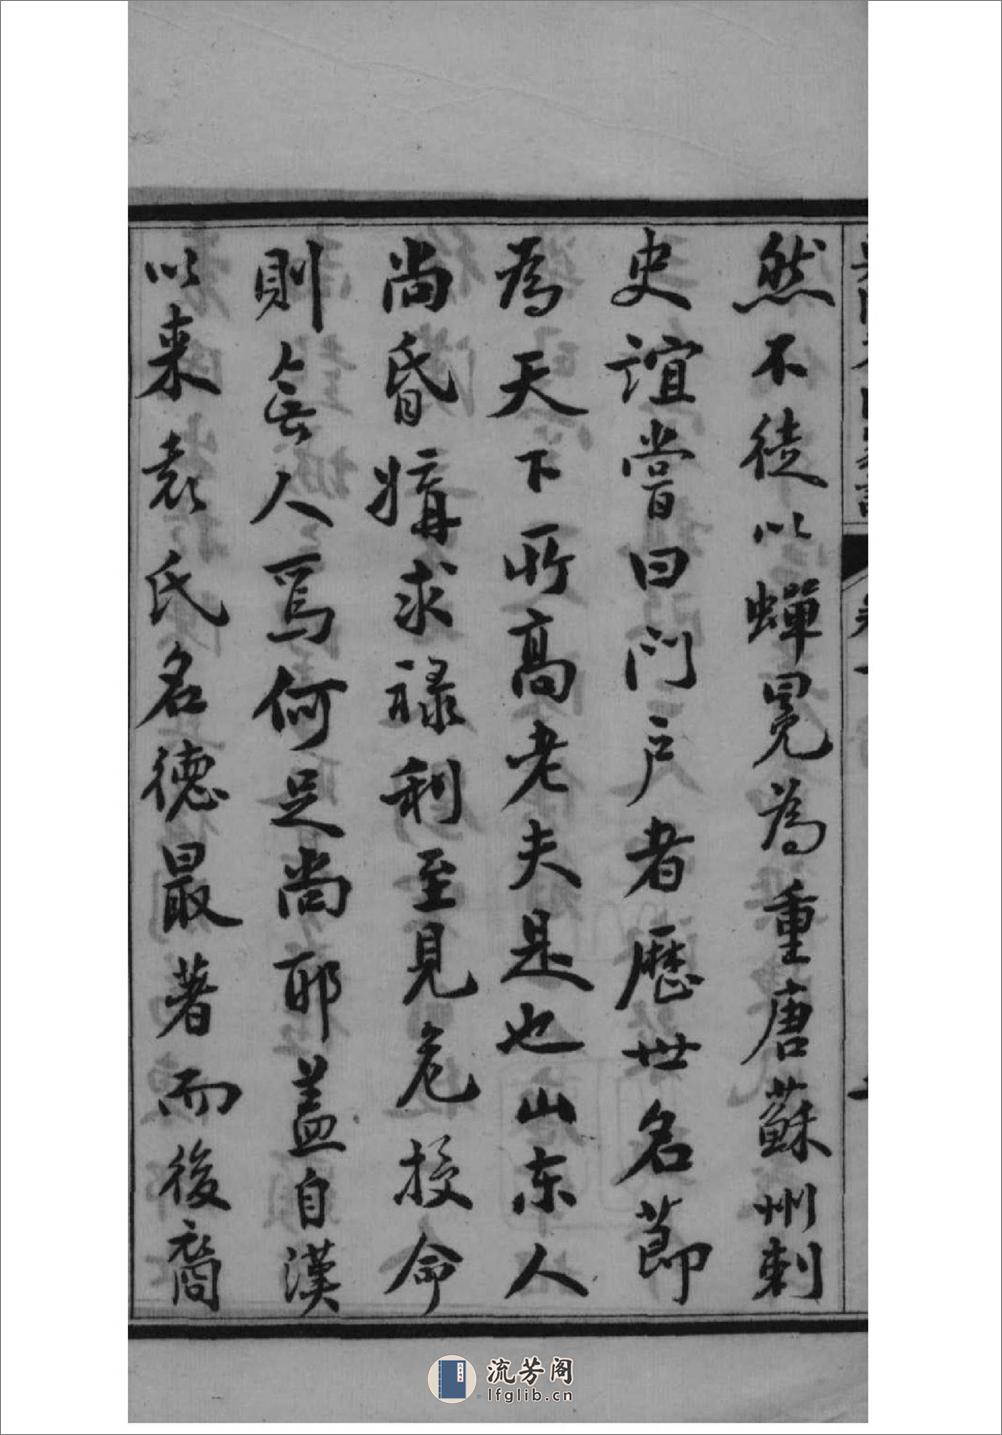 然不徒以蟬冕為重唐蘇州刺
史誼嘗曰門户者歷世名節
為天下所高老夫是也山东人
尚昏媾求禄利至見危授命
則無人焉何足尚耶盖自漢
以来袁氏名德最著而後裔
流芳阁
lfglib.cn